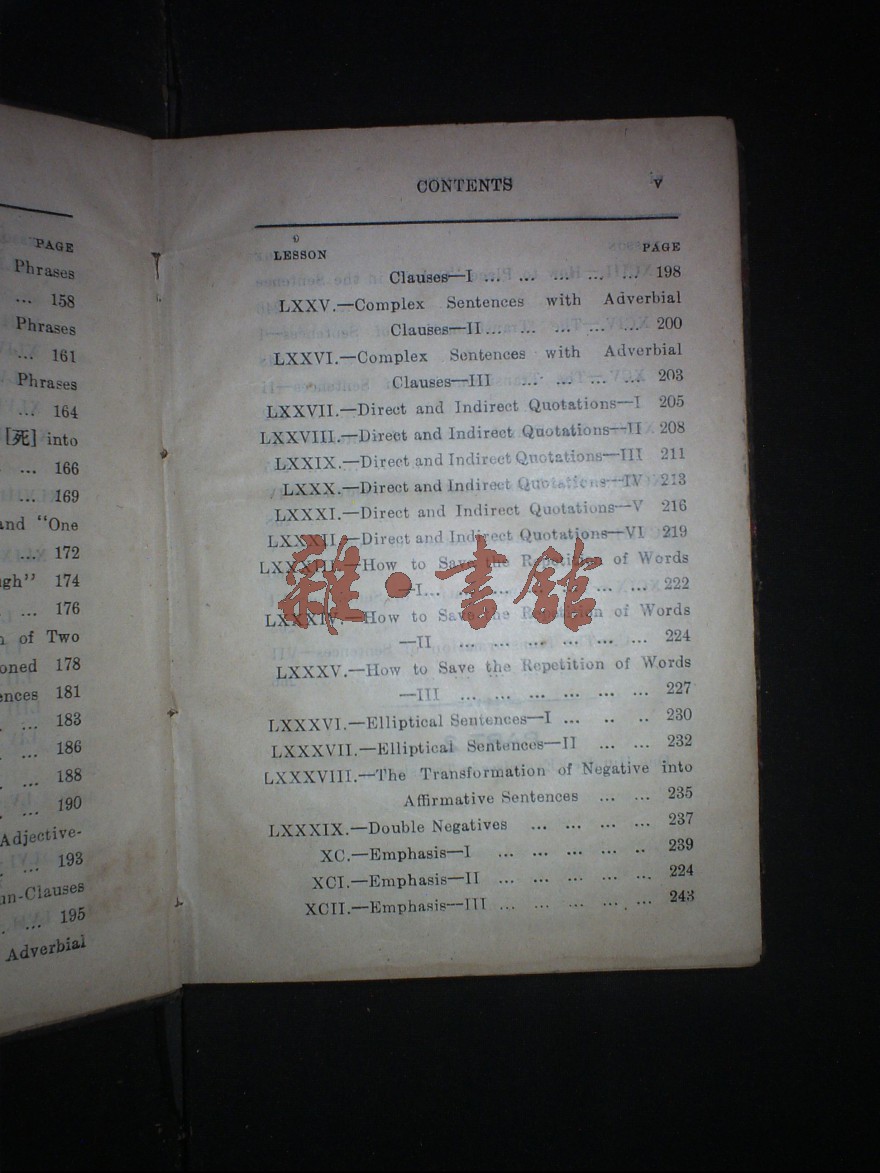 PAGE
Phrases
... 158
Phrases
... 161
Phrases
... 164
[死] into
... 166
... 169
and "One
... 172
ugh" 174
... 176
n of Two
oned 178
ences 181
... 183
... 186
... 188
... 190
Adjective-
... 193
un-Clauses
... 195
Adverbial
CONTENTS v
LESSON PAGE
Clauses—I ... ... ... ... ... 198
LXXV.—Complex Sentences with Adverbial
Clauses—II ... ... ... ... ... 200
LXXVI.—Complex Sentences with Adverbial
Clauses—III ... ... ... ... 203
LXXVII.—Direct and Indirect Quotations—I 205
LXXVIII.—Direct and Indirect Quotations—II 208
LXXIX.—Direct and Indirect Quotations—III 211
LXXX.—Direct and Indirect Quotations—IV 213
LXXXI.—Direct and Indirect Quotations—V 216
LXXXII.—Direct and Indirect Quotations—VI 219
LXXXIII.—How to Save the Repetition of Words
—I ... ... ... ... ... ... ... 222
LXXXIV.—How to Save the Repetition of Words
—II ... ... ... ... ... ... ... 224
LXXXV.—How to Save the Repetition of Words
—III ... ... ... ... ... ... 227
LXXXVI.—Elliptical Sentences—I ... .. .. 230
LXXXVII.—Elliptical Sentences—II ... ... 232
LXXXVIII.—The Transformation of Negative into
Affirmative Sentences ... ... 235
LXXXIX.—Double Negatives ... ... ... ... 237
XC.—Emphasis—I ... ... ... ... .. 239
XCI.—Emphasis—II ... ... ... ... ... 224
XCII.—Emphasis—III ... ... ... ... ... 243
雜·書館